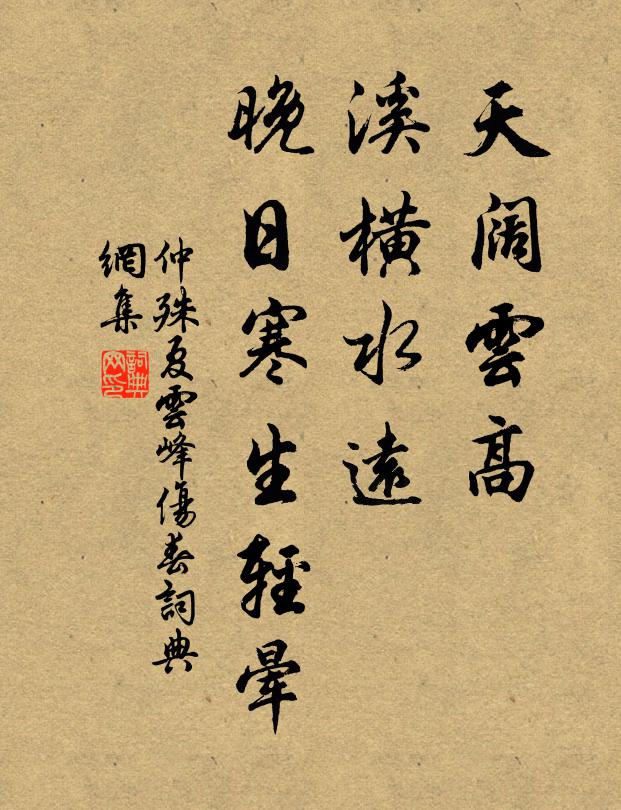 天闊雲高
溪橫水遠
晚日寒生輕暈
仲殊夏雲峰傷春詞典
網集
詞典網印